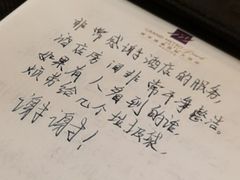 非常感谢酒店的服务,
酒店房间非常干净整洁。
如果有人看到的话,
烦劳给几个垃圾袋,
谢谢!